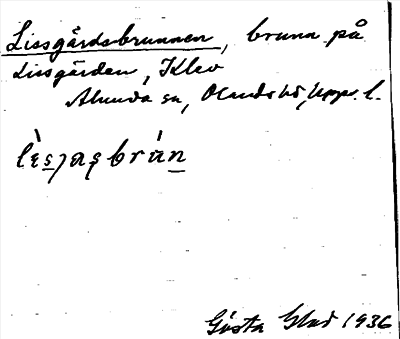 Lissgårdsbrunnen, brunn på
Lissgården, Klev
Alunda sn, Olands hd, Upps. l.
Gösta Glad 1936